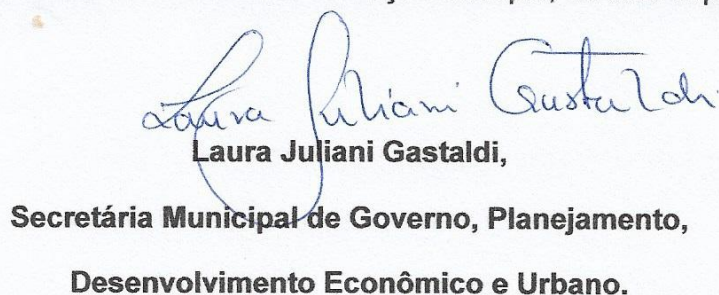 Laura Juliani Gastaldi
Laura Juliani Gastaldi,
Secretária Municipal de Governo, Planejamento,
Desenvolvimento Econômico e Urbano.